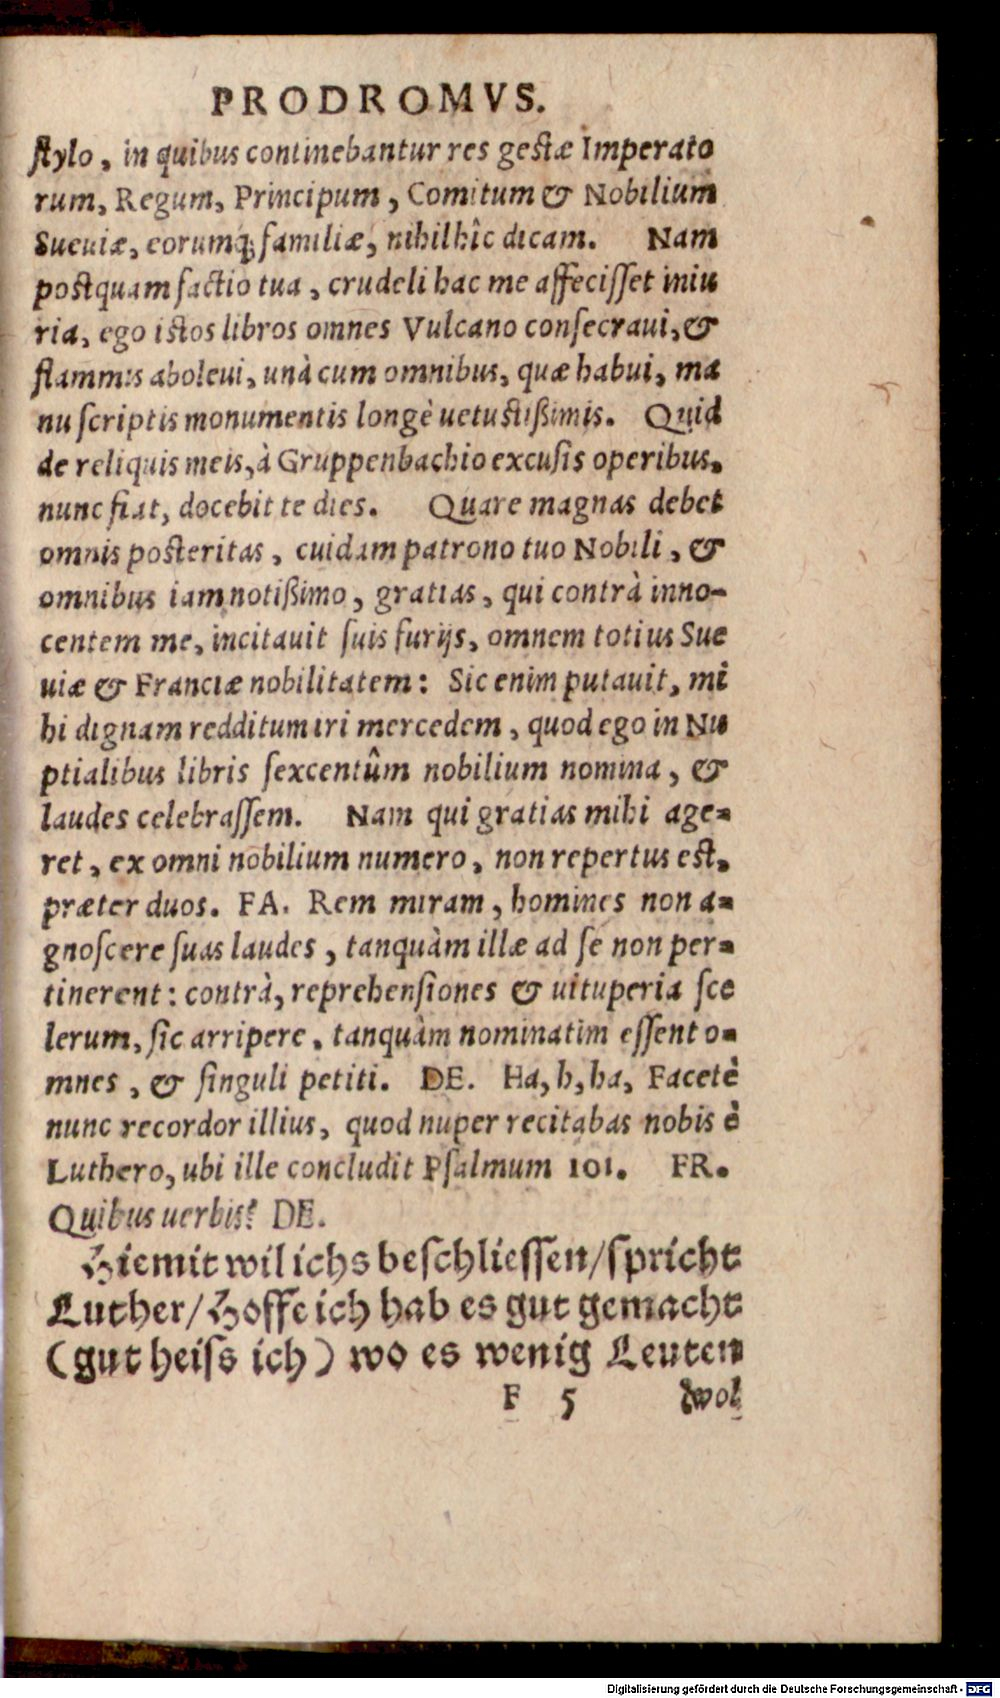 PRODROMVS.
ſtylo, in quibus continebantur res gestæ Imperato
rum, Regum, Principum, Comitum & Nobilium
Sueuiæ, eorumq; familiæ, nihil hîc dicam. Nam
postquam factio tua, crudeli hac me affeciſſet iniu
ria, ego istos libros omnes Vulcano conſecraui, &
flammis aboleui, unà cum omnibus, quæ habui, ma
nu ſcriptis monumentis longè uetustißimis. Quid
de reliquis meis, à Gruppenbachio excuſis operibus,
nunc fiat, docebit te dies. Quare magnas debet
omnis posteritas, cuidam patrono tuo Nobili, &
omnibus iam notißimo, gratias, qui contrà inno-
centem me, incitauit ſuis furijs, omnem totius Sue
uiæ & Franciæ nobilitatem: Sic enim putauit, mi
hi dignam redditum iri mercedem, quod ego in Nu
ptialibus libris ſexcentûm nobilium nomina, &
laudes celebraſſem. Nam qui gratias mihi age-
ret, ex omni nobilium numero, non repertus est,
præter duos. FA. Rem miram, homines non a-
gnoſcere ſuas laudes, tanquàm illæ ad ſe non per-
tinerent: contrà, reprehenſiones & uituperia ſce
lerum, ſic arripere, tanquàm nominatim eſſent o-
mnes, & ſinguli petiti. DE. Ha, h, ha, Facetè
nunc recordor illius, quod nuper recitabas nobis è
Luthero, ubi ille concludit Pſalmum 101. FR.
Quibus uerbis? DE.
Hiemit wil ichs beſchlieſſen/ſpricht
Luther/Hoffe ich hab es gut gemacht
(gut heiſs ich) wo es wenig Leuten
F 5 wol
Digitalisierung gefördert durch die Deutsche Forschungsgemeinschaft - DFG